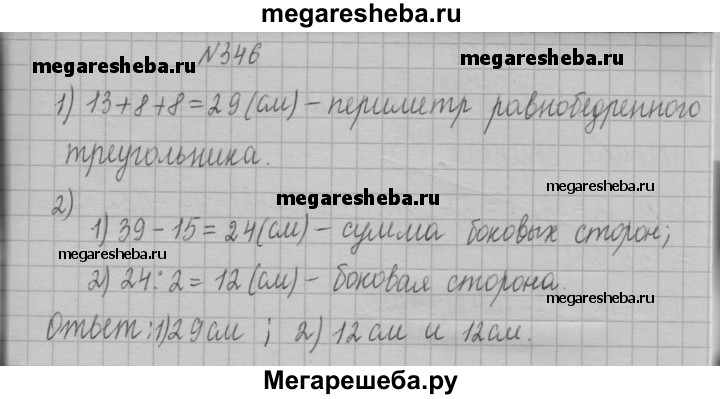 megaresheba.ru
N346
megaresheba.ru
megaresheba.ru
1) 13+8+8=29(см) – периметр равнобедренного
треугольника.
megaresheba.ru
megaresheba.ru
2)
1) 39 - 15 = 24(см) – сумма боковых сторон;
megaresheba.ru
2) 24 : 2 = 12 (см) – боковая сторона.
megaresheba.ru
Ответ: 1) 29 см ; 2) 12 см и 12 см.
Мегарешеба.ру